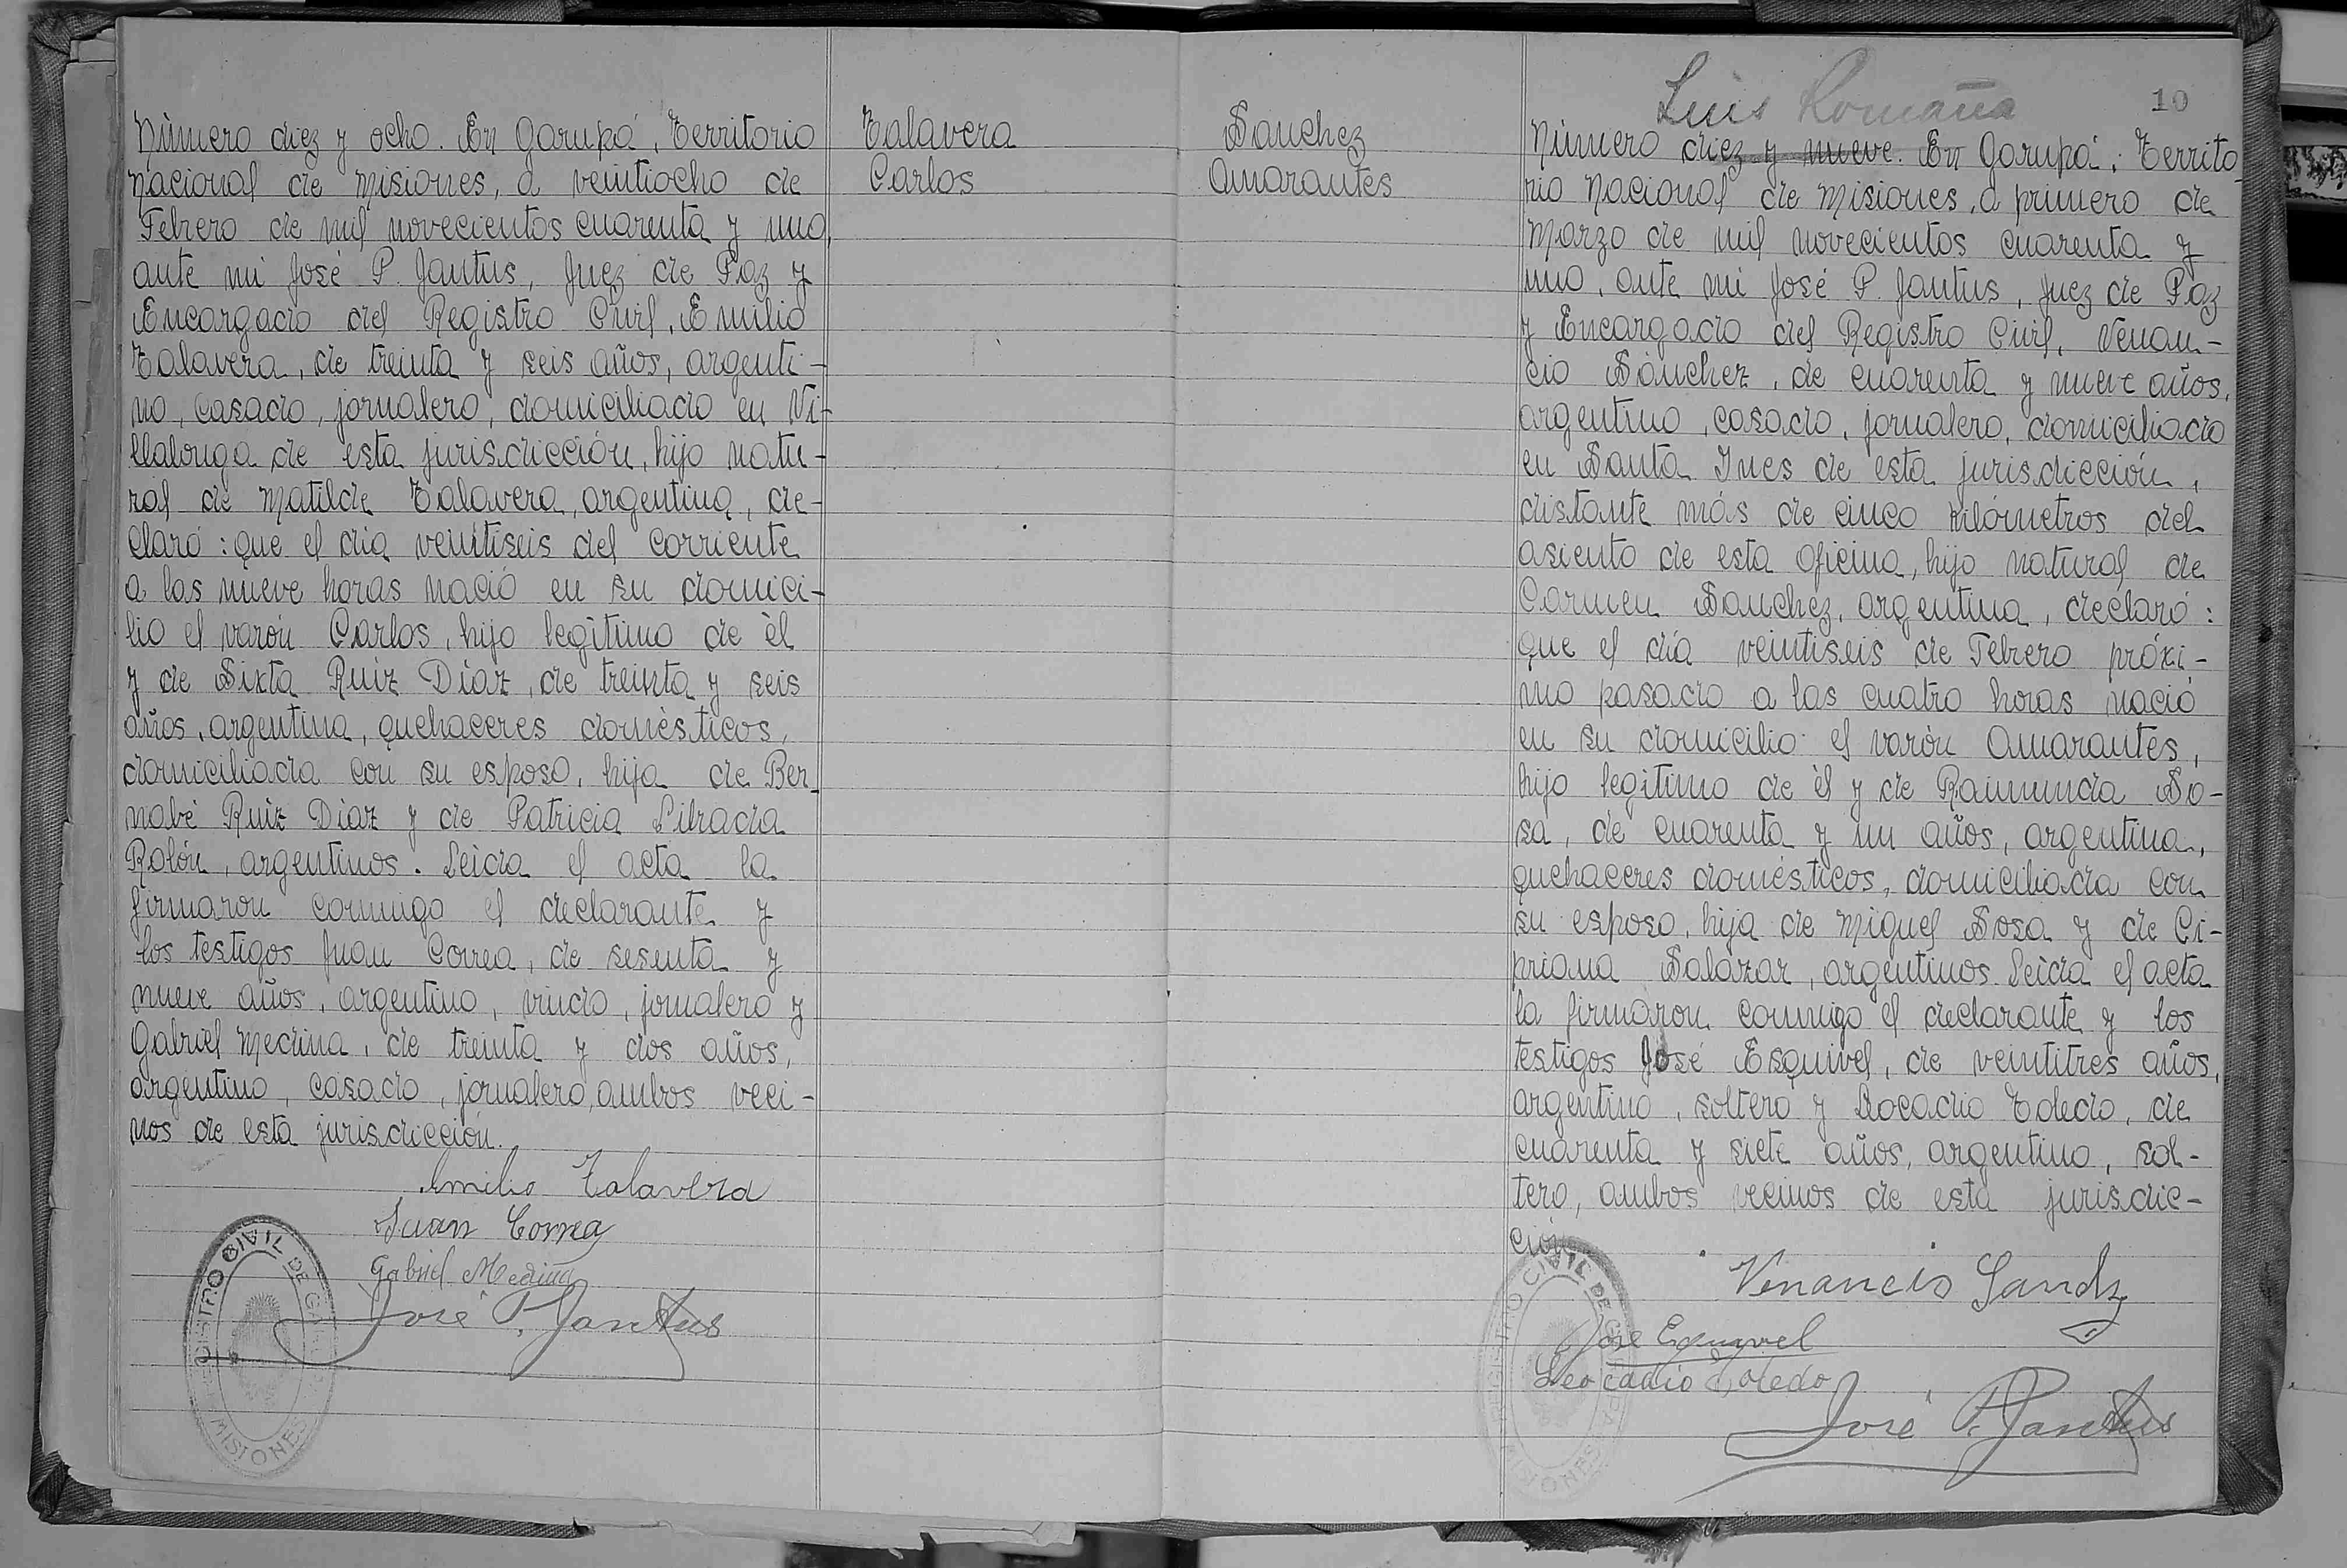 Número diez y ocho. En Garupá, Territorio
Nacional de Misiones, a veintiocho de
Febrero de mil novecientos cuarenta y uno,
ante mi José P. Jantus, Juez de Paz y
Encargado del Registro Civil, Emilio
Talavera, de treinta y seis años, argenti-
no, casado, jornalero, domiciliado en Vi-
llalonga de esta jurisdicción, hijo natu-
ral de Matilde Talavera, argentina, de-
claró: que el día veintiseis del corriente
a las nueve horas nació en su domici-
lio el varón Carlos, hijo legítimo de él
y de Sixta Ruiz Díaz, de treinta y seis
años, argentina, quehaceres domésticos,
domiciliada con su esposo, hija de Ber-
nabé Ruiz Díaz y de Patricia Librada
Rolón, argentinos. Leída el acta la
firmaron conmigo el declarante y
los testigos Juan Correa, de sesenta y
nueve años, argentino, viudo, jornalero y
Gabriel Medina, de treinta y dos años,
argentino, casado, jornalero, ambos veci-
nos de esta jurisdicción.
Emilio Talavera
Juan Correa
Gabriel Medina
José P. Jantus
REGISTRO CIVIL DE GARUPA
MISIONES
Talavera
Carlos
Sanchez
Amarantes
Luis Romaña
10
Número diez y nueve. En Garupá, Territo-
rio Nacional de Misiones, a primero de
Marzo de mil novecientos cuarenta y
uno, ante mi José P. Jantus, Juez de Paz
y Encargado del Registro Civil, Venan-
cio Sánchez, de cuarenta y nueve años,
argentino, casado, jornalero, domiciliado
en Santa Ines de esta jurisdicción,
distante más de cinco kilómetros del
asiento de esta oficina, hijo natural de
Carmen Sanchez, argentina, declaró:
que el día veintiseis de Febrero próxi-
mo pasado a las cuatro horas nació
en su domicilio el varón Amarantes,
hijo legítimo de él y de Raimunda So-
sa, de cuarenta y un años, argentina,
quehaceres domésticos, domiciliada con
su esposo, hija de Miguel Sosa y de Ci-
priana Salazar, argentinos. Leída el acta
la firmaron conmigo el declarante y los
testigos José Esquivel, de veintitres años,
argentino, soltero y Locadio Toledo, de
cuarenta y siete años, argentino, sol-
tero, ambos vecinos de esta jurisdic-
ción.
Venancio Sandz
José Esquivel
Leocadio Toledo
José P. Jantus
REGISTRO CIVIL DE GARUPA
MISIONES